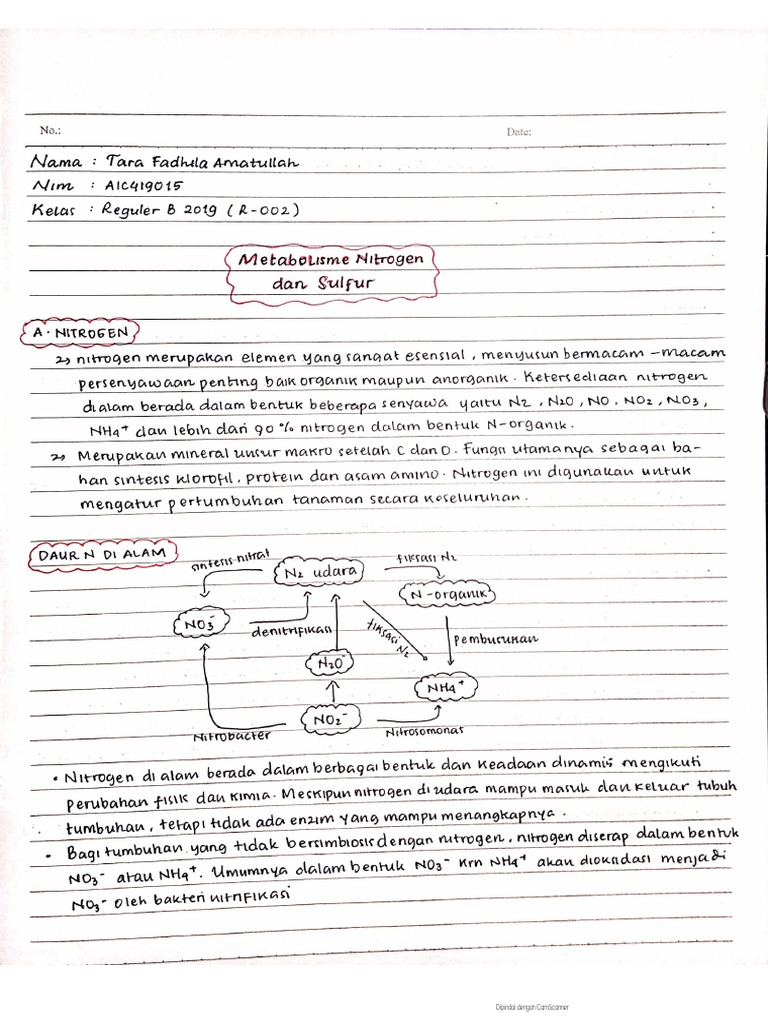 No.:
Date:
Nama : Tara Fadhila Amatullah
Nim : A1C419015
Kelas : Reguler B 2019 (R-002)
Metabolisme Nitrogen
dan Sulfur
A. NITROGEN
nitrogen merupakan elemen yang sangat esensial, menyusun bermacam-macam
persenyawaan penting baik organik maupun anorganik. Ketersediaan nitrogen
dialam berada dalam bentuk beberapa senyawa yaitu N2, N2O, NO, NO2, NO3,
NH4+ dan lebih dari 90% nitrogen dalam bentuk N-organik.
Merupakan mineral unsur makro setelah C dan O. Fungsi utamanya sebagai ba-
han sintesis klorofil, protein dan asam amino. Nitrogen ini digunakan untuk
mengatur pertumbuhan tanaman secara keseluruhan.
DAUR N DI ALAM
sintesis nitrat
N2 udara
fiksasi N2
N-organik
NO3-
denitrifikasi
fiksasi N2
pembusukan
N2O-
NH4+
NO2-
Nitrobacter
Nitrosomonas
• Nitrogen di alam berada dalam berbagai bentuk dan keadaan dinamis mengikuti
perubahan fisik dan kimia. Meskipun nitrogen di udara mampu masuk dan keluar tubuh
tumbuhan, tetapi tidak ada enzim yang mampu menangkapnya.
• Bagi tumbuhan yang tidak bersimbiosis dengan nitrogen, nitrogen diserap dalam bentuk
NO3- atau NH4+. Umumnya dalam bentuk NO3- krn NH4+ akan dioksidasi menjadi
NO3- oleh bakteri nitrifikasi
Dipindai dengan CamScanner